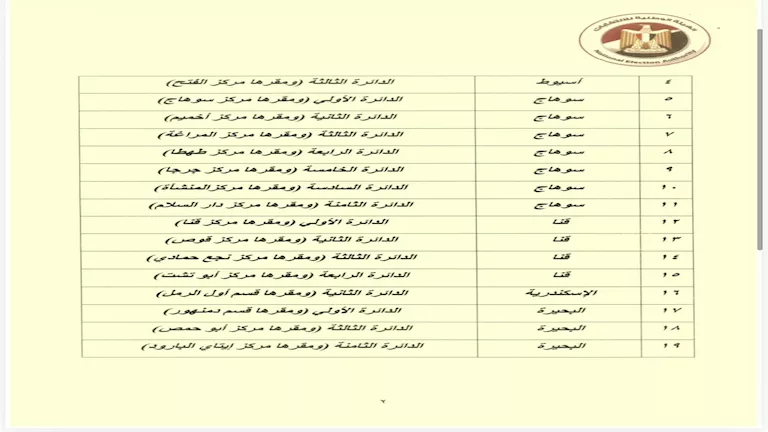 الهيئة الوطنية للانتخابات
National Election Authority
٤ أسيوط الدائرة الثالثة (ومقرها مركز الفتح)
٥ سوهاج الدائرة الأولي (ومقرها مركز سوهاج)
٦ سوهاج الدائرة الثانية (ومقرها مركز أخميم)
٧ سوهاج الدائرة الثالثة (ومقرها مركز المراغة)
٨ سوهاج الدائرة الرابعة (ومقرها مركز طهطا)
٩ سوهاج الدائرة الخامسة (ومقرها مركز جرجا)
١٠ سوهاج الدائرة السادسة (ومقرها مركز المنشأة)
١١ سوهاج الدائرة الثامنة (ومقرها مركز دار السلام)
١٢ قنا الدائرة الأولي (ومقرها مركز قنا)
١٣ قنا الدائرة الثانية (ومقرها مركز قوص)
١٤ قنا الدائرة الثالثة (ومقرها مركز نجع حمادي)
١٥ قنا الدائرة الرابعة (ومقرها مركز أبو تشت)
١٦ الإسكندرية الدائرة الثانية (ومقرها قسم أول الرمل)
١٧ البحيرة الدائرة الأولي (ومقرها قسم دمنهور)
١٨ البحيرة الدائرة الثالثة (ومقرها مركز أبو حمص)
١٩ البحيرة الدائرة الثامنة (ومقرها مركز إيتاي البارود)
٢